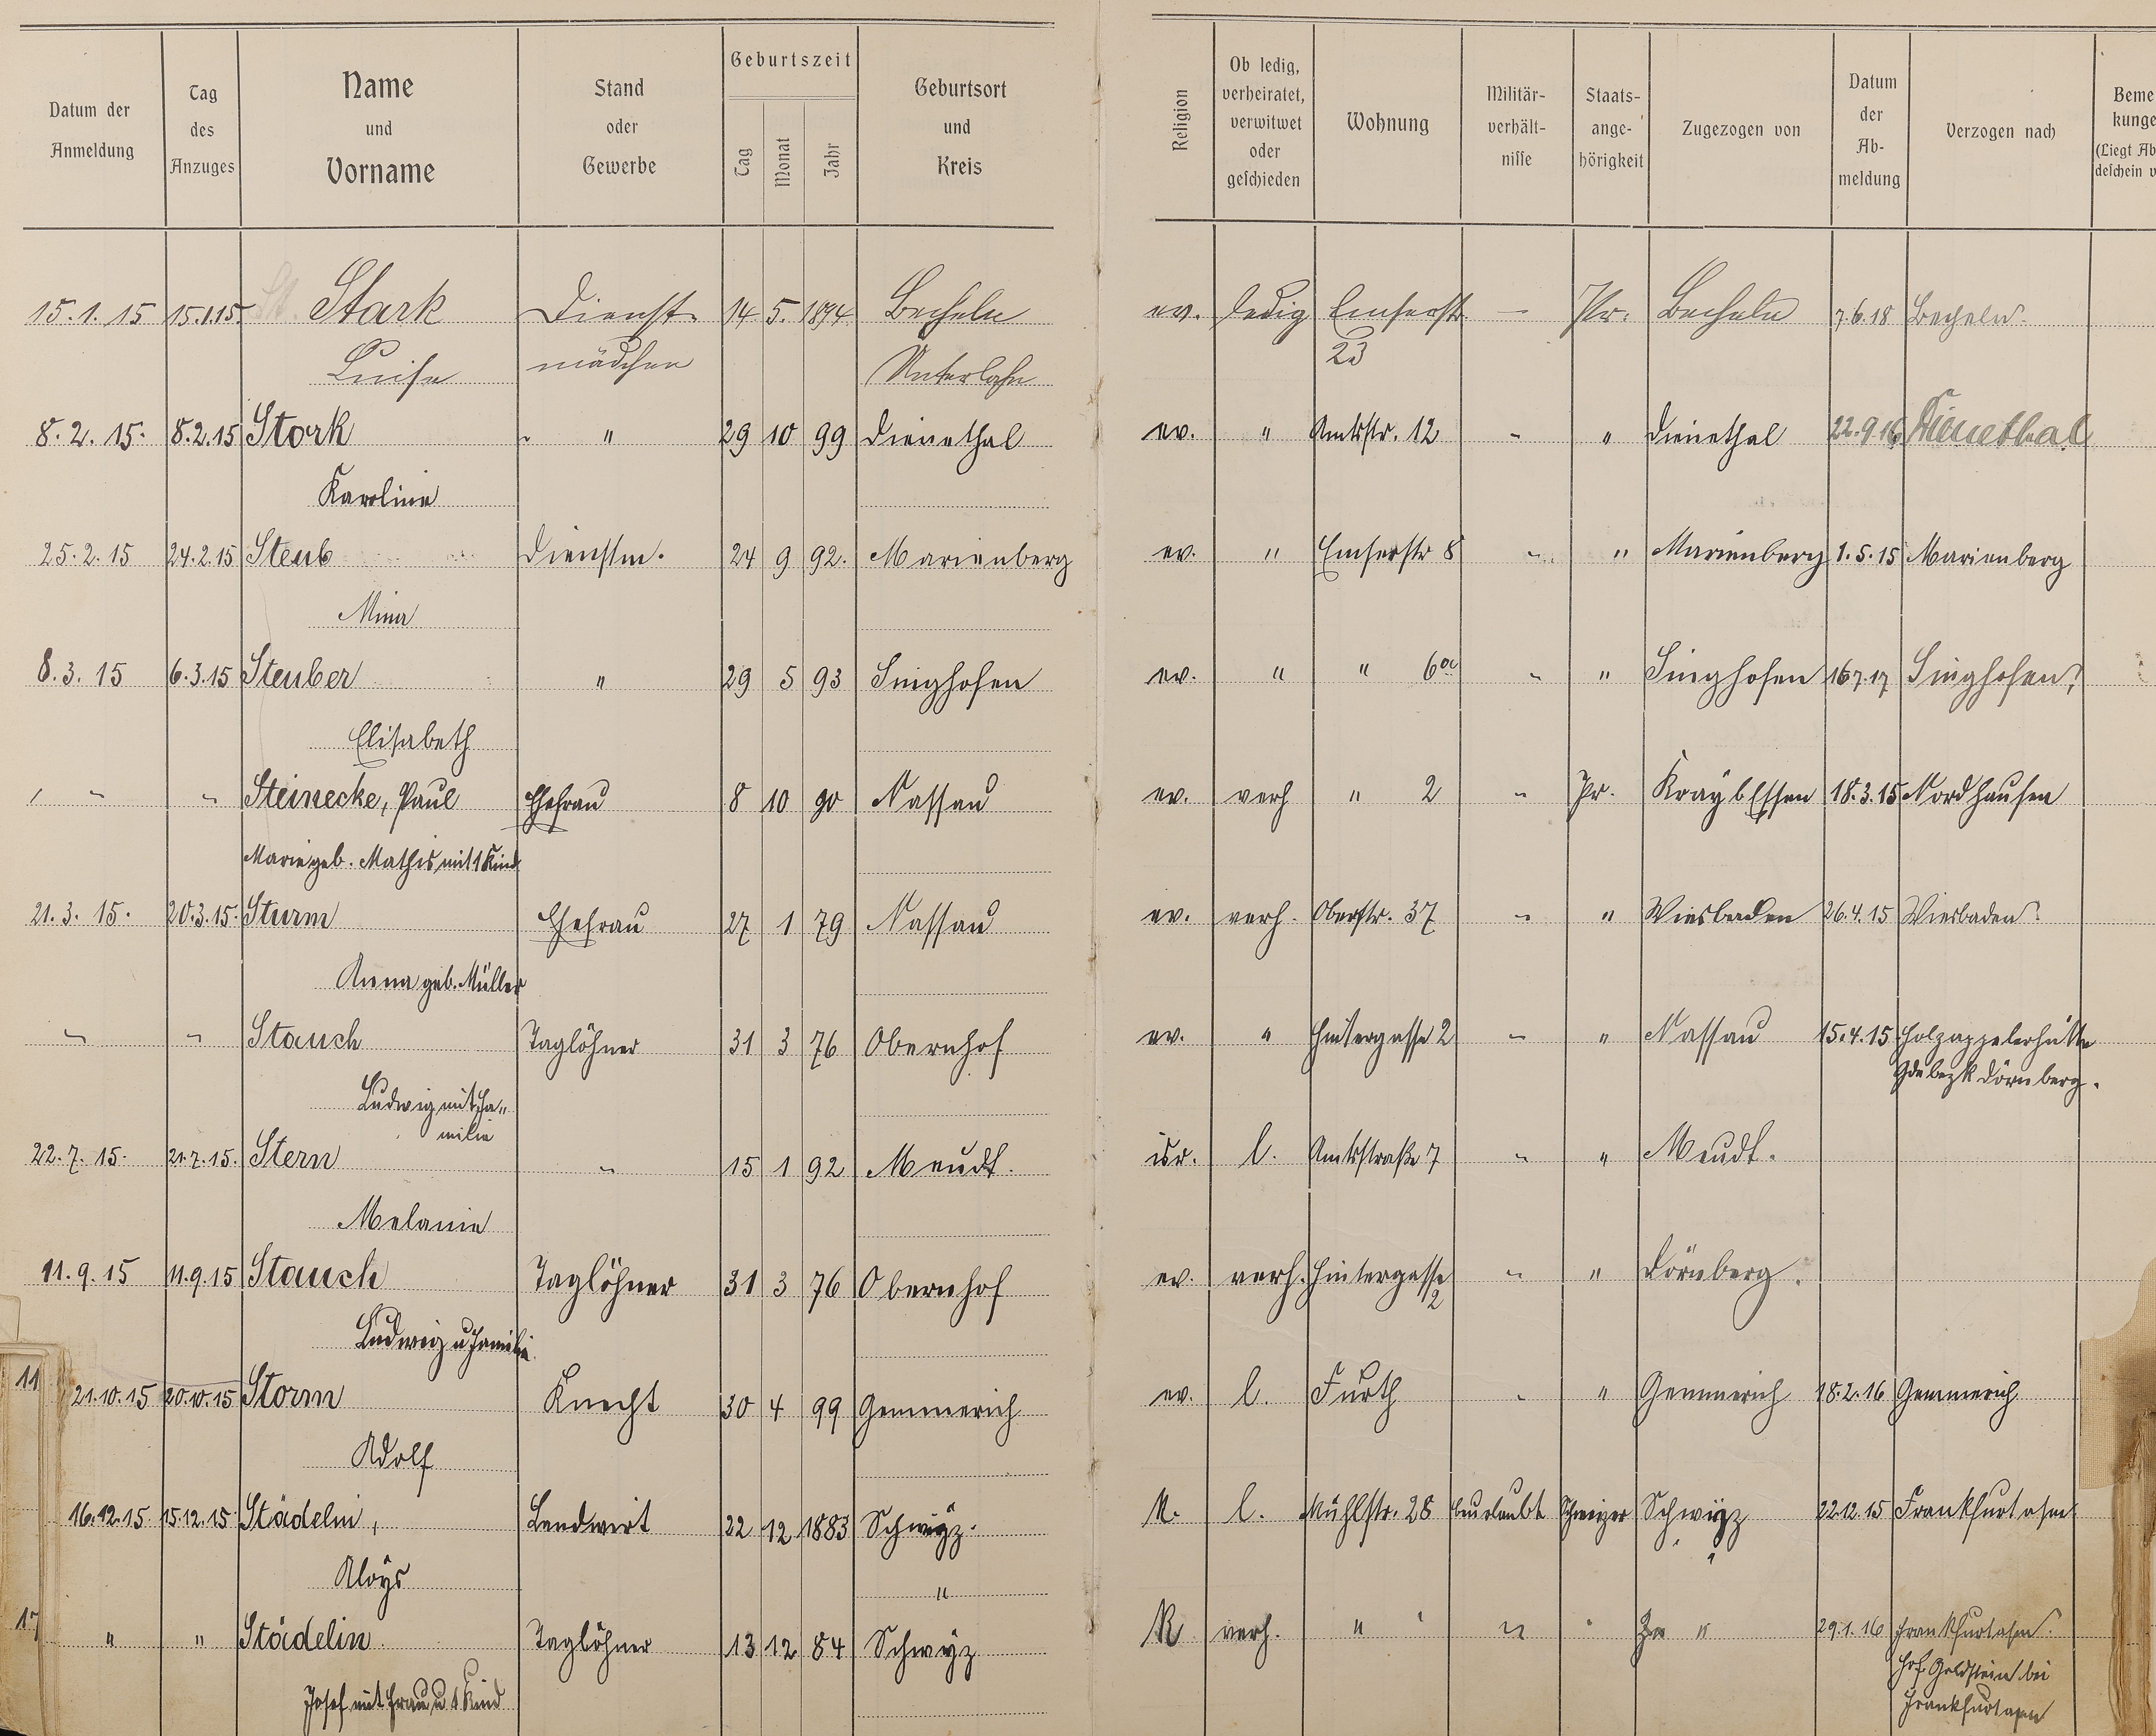 Datum der Anmeldung | Tag des Anzuges | Name und Vorname | Stand oder Gewerbe | Geburtszeit Tag Monat Jahr | Geburtsort und Kreis | Religion | Ob ledig, verheiratet, verwitwet oder geschieden | Wohnung | Militär-verhält-nisse | Staats-ange-hörigkeit | Zugezogen von | Datum der Ab-meldung | Verzogen nach | Beme kunge (Liegt Ab deschein v
15.1.15 15.1.15. St. Stark Dienst- 14 5. 1894 Becheln ev. ledig Emserstr – Pr. Becheln 7.6.18 Becheln.
Luise mädchen Unterlahn 23
8.2.15. 8.2.15 Stork " " 29 10 99 Dienethal ev. " Amtsstr. 12 " " Dienethal 22.9.16 Dienethal
Karoline
25.2.15 24.2.15 Steub Dienstm. 24 9 92. Marienberg ev. " Emserstr 8 " " Marienberg 1.5.15 Marienberg
Mina
8.3.15 6.3.15 Steuber " 29 5 93 Singhofen ev. " " 6a " " Singhofen 16.7.17 Singhofen
Elisabeth
" " " Steinecke, Paul Ehefrau 8 10 90 Nassau ev. verh " 2 " Pr. Kray b Essen 18.3.15 Nordhausen
Marie geb. Mathis mit 1 Kind
21.3.15. 20.3.15. Sturm Ehefrau 27 1 79 Nassau ev. verh. Oberstr. 37 " " Wiesbaden 26.4.15 Wiesbaden
Anna geb. Müller
" " Stauch Taglöhner 31 3 76 Obernhof ev. " Hintergasse 2 " " Nassau 15.4.15 Holzappelerhütte
Ludwig mit Fa„ Gdebezk Dörnberg.
milie
22.7.15. 21.7.15. Stern " 15 1 92 Meudt. isr. l. Amtsstraße 7 " " Meudt.
Melanie
11.9.15 11.9.15 Stauch Taglöhner 31 3 76 Obernhof ev. verh. Hintergasse 2 " " Dörnberg.
Ludwig u Familie.
11
21.10.15 20.10.15 Storm Knecht 30 4 99 Gemmerich ev. l. Furth " " Gemmerich 18.2.16 Gemmerich
Adolf
16.12.15. 15.12.15 Städelin, Landwirt 22 12 1883 Schwÿz. K. l. Mühlstr. 28 beurlaubt Schweizer Schwÿz 22.12.15 Frankfurt a/m
Aloÿs " "
17
" " Städelin Taglöhner 13 12 84 Schwÿz K verh. " " " " " 29.1.16 Frankfurt a/m.
Josef mit Frau u 1 Kind Hof Goldstein bei
Frankfurt a/m